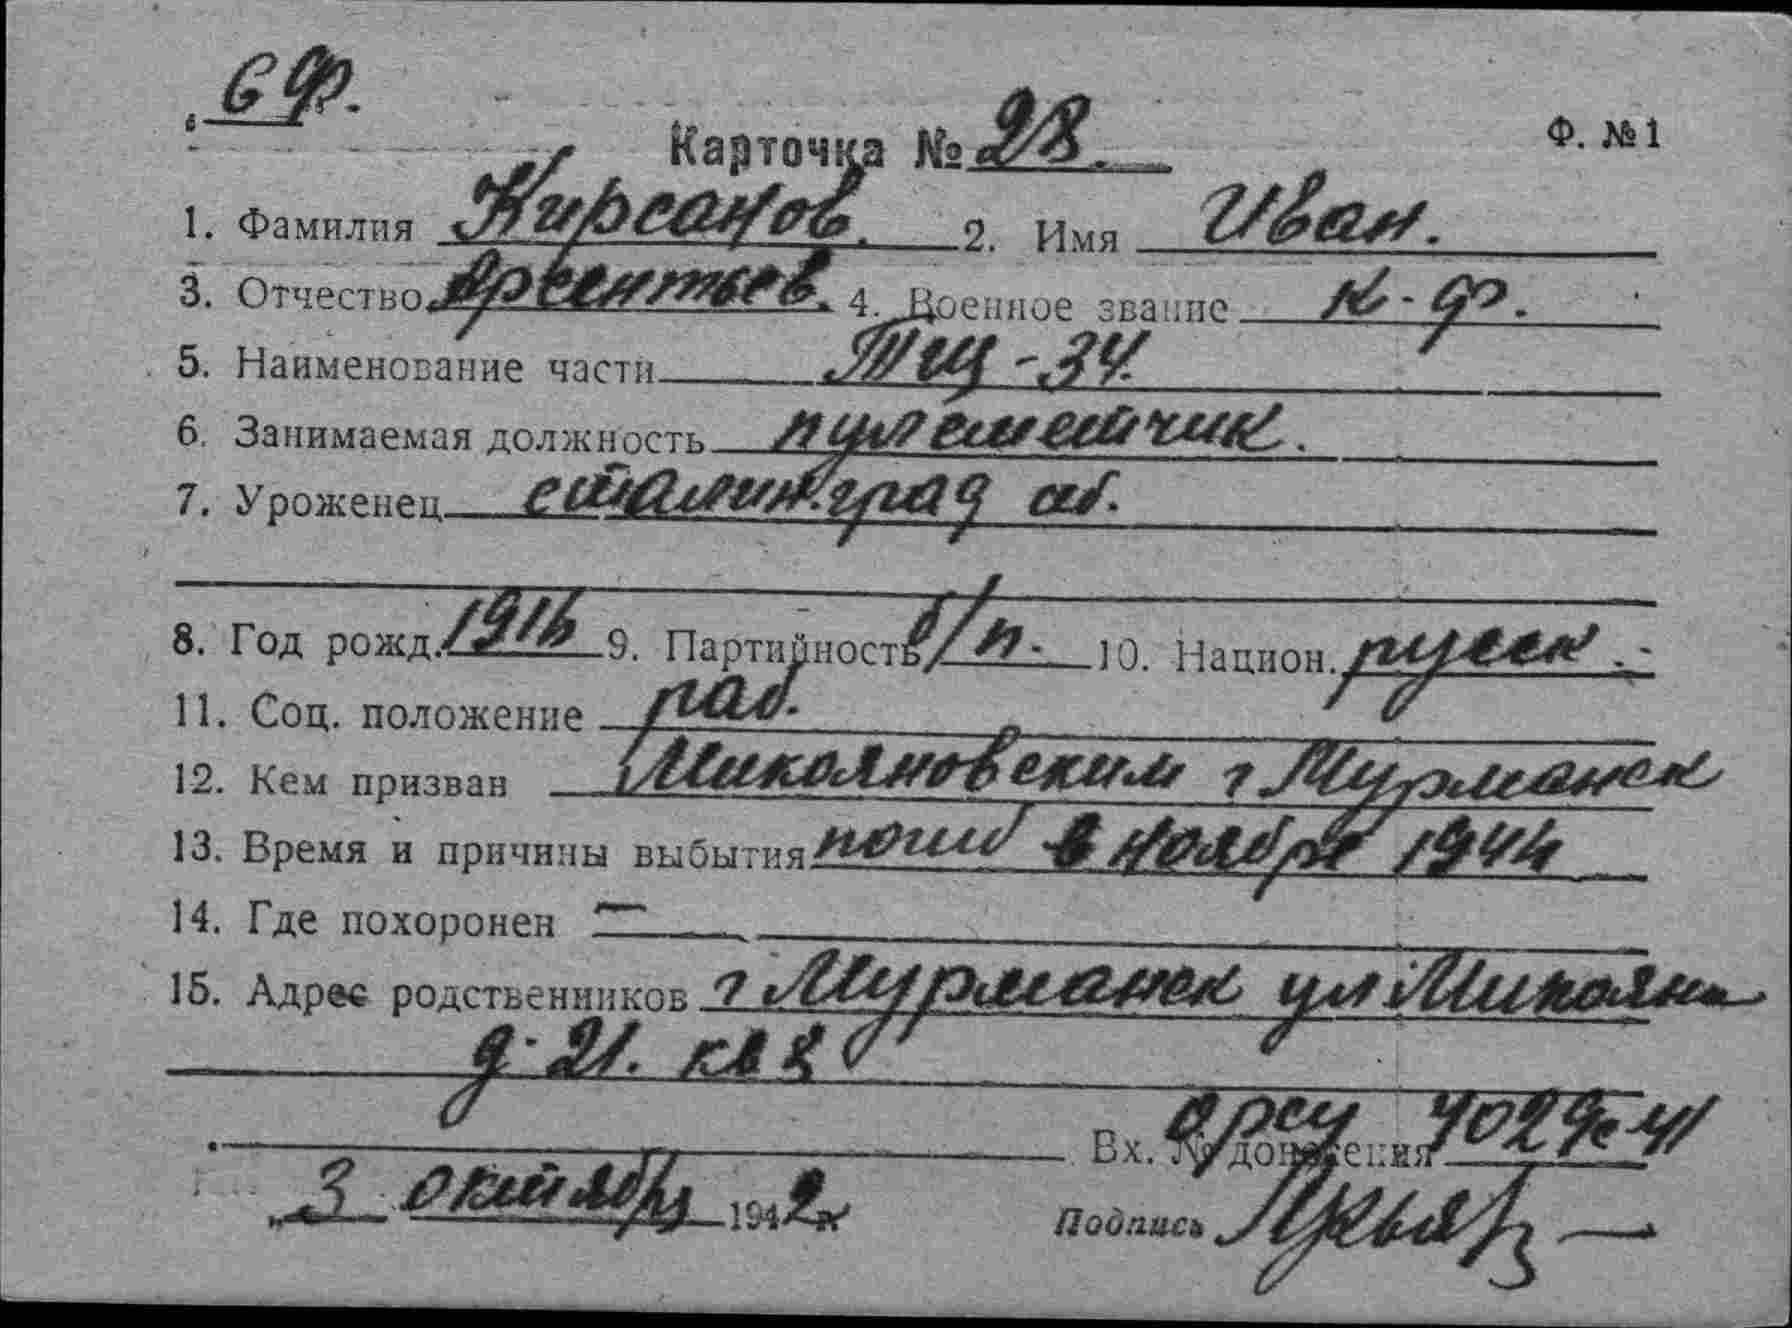 СФ.
Карточка № 28. Ф. №1
1. Фамилия Кирсанов. 2. Имя Иван.
3. Отчество Арсентьев. 4. Военное звание к-ф.
5. Наименование части ТЩ-34.
6. Занимаемая должность пулеметчик.
7. Уроженец сталинград об.
8. Год рожд. 1916 9. Партийность б/п. 10. Национ. русск.
11. Соц. положение раб.
12. Кем призван Микояновским г Мурманск
13. Время и причины выбытия погиб в ноябре 1944
14. Где похоронен —
15. Адрес родственников г Мурманск ул Микояна
д. 21. кв 8
Вх. № донесения 4029с-41
„3 октября 1942
Подпись